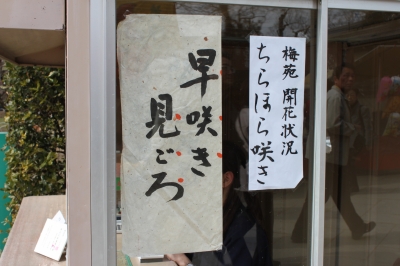 梅苑 開花状況
ちらほら咲き
早咲き
見ごろ